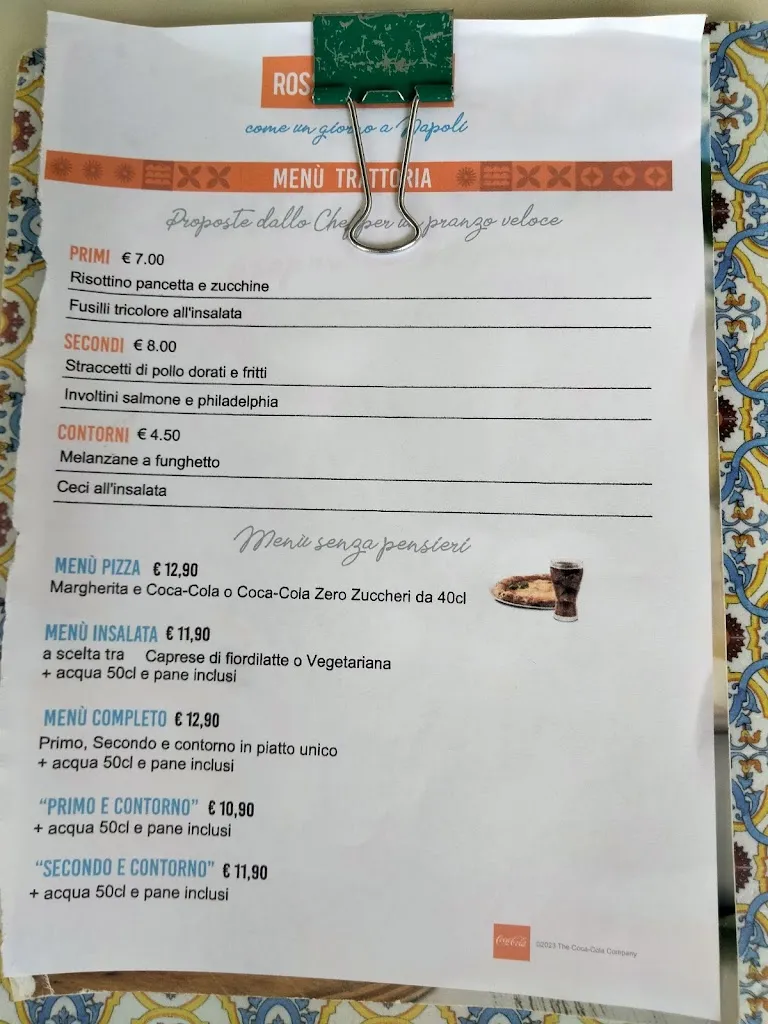 ROS
come un giorno a Napoli
MENÙ TRATTORIA
Proposte dallo Chef per un pranzo veloce
PRIMI € 7.00
Risottino pancetta e zucchine
Fusilli tricolore all'insalata
SECONDI € 8.00
Straccetti di pollo dorati e fritti
Involtini salmone e philadelphia
CONTORNI € 4.50
Melanzane a funghetto
Ceci all'insalata
Menù senza pensieri
MENÙ PIZZA € 12,90
Margherita e Coca-Cola o Coca-Cola Zero Zuccheri da 40cl
MENÙ INSALATA € 11,90
a scelta tra Caprese di fiordilatte o Vegetariana
+ acqua 50cl e pane inclusi
MENÙ COMPLETO € 12,90
Primo, Secondo e contorno in piatto unico
+ acqua 50cl e pane inclusi
“PRIMO E CONTORNO” € 10,90
+ acqua 50cl e pane inclusi
“SECONDO E CONTORNO” € 11,90
+ acqua 50cl e pane inclusi
Coca-Cola ©2023 The Coca-Cola Company